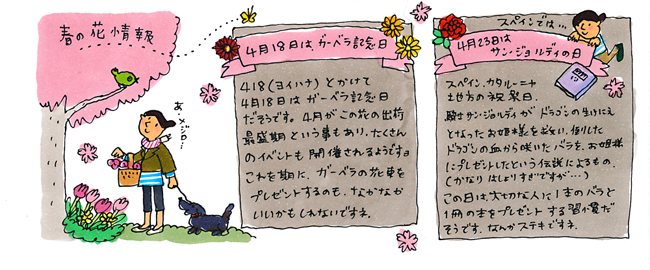 春の花情報
あ、メジロ…
4月18日は ガーベラ記念日
418(ヨイハナ)とかけて
4月18日は ガーベラ記念日
だそうです。4月がこの花の出荷
最盛期という事もあり、たくさん
のイベントも 開催されるようですョ
これを期に、ガーベラの花束を
プレゼントするのも、なかなか
いいかもしれないですネ。
スペインでは…
4月23日は
サン・ジョルディの日
スペイン、カタルーニャ
地方の祝祭日。
騎士サン・ジョルディが ドラゴンの生けにえ
となった お姫様を 救い、倒した
ドラゴンの血から咲いた バラを、お姫様
にプレゼントしたという伝説によるもの。
(かなり はしょりすぎですが…)
この日は、大切な人に 1本のバラと
1冊の本をプレゼント する習慣だ
そうです。なんかステキですネ。